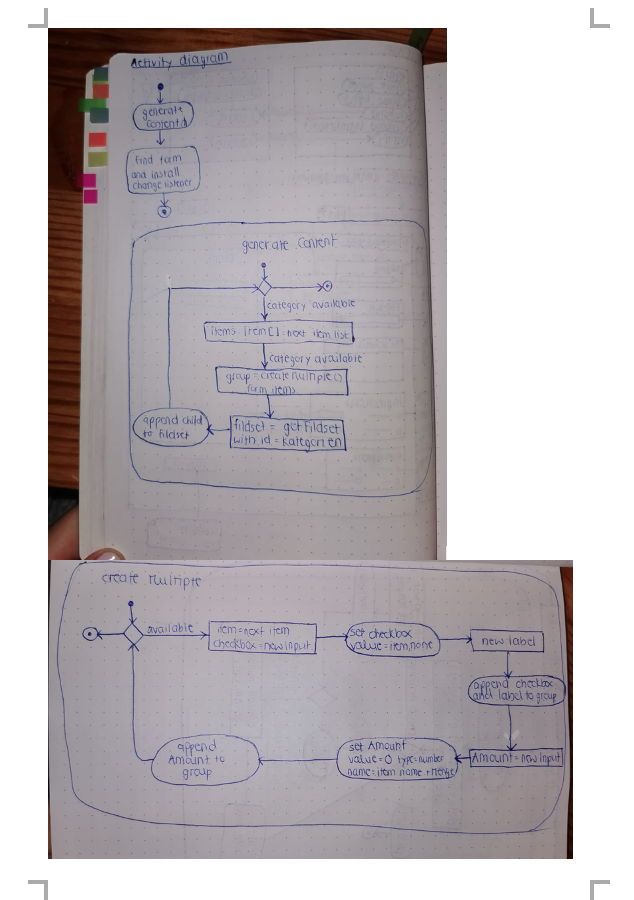 Activity diagram
generate
Content
find form
and install
change listener
generate Content
category available
items: item[] = next item list
category available
group = create Multiple()
from items
append child
to fildset
fildset = get Fildset
with id = Kategorien
create Multiple
available
item = next item
checkbox = new input
set checkbox
value = item.name
new label
append checkbox
and label to group
Amount = new input
set Amount
value = 0 type = number
name = item name +
append
Amount to
group